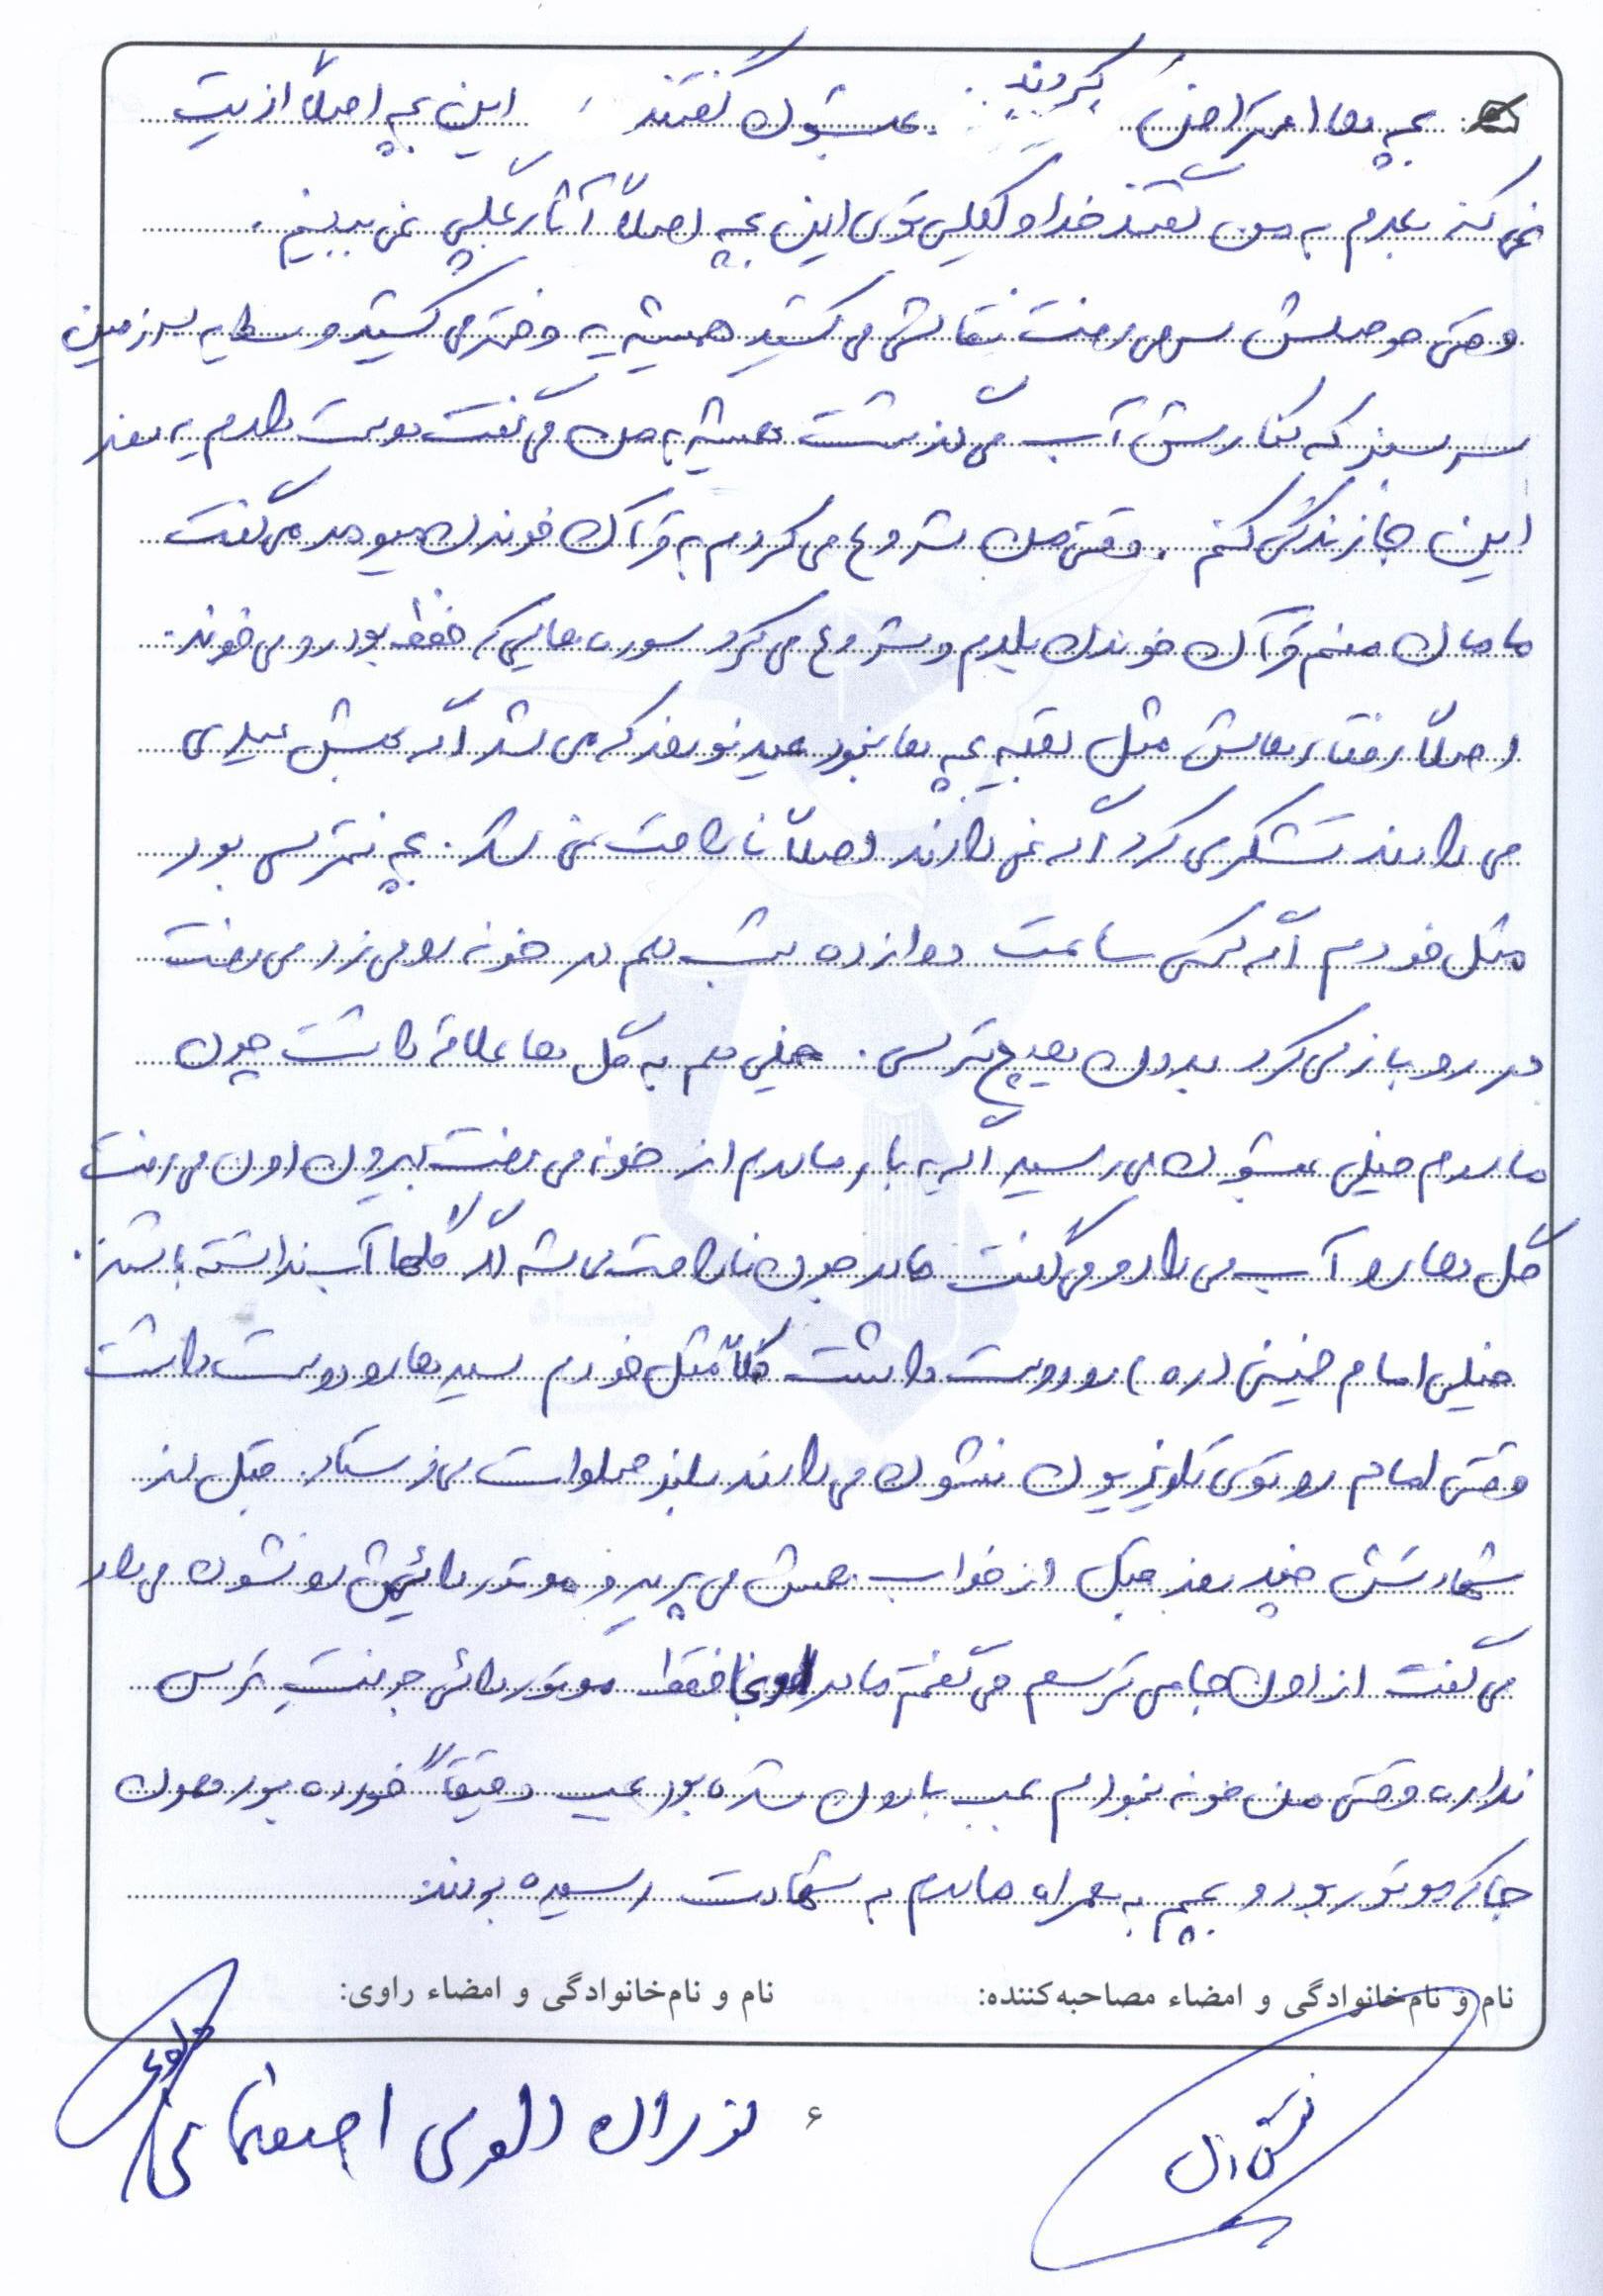 بچه ها اعتراض کردند. بهشون گفتند این بچه اصلاً اذیت
نمی کنه بعدم به من گفتند خداوکیلی توی این بچه اصلاً آثار بچگی نمی بینیم.
وقتی حوصلش سر می رفت نقاشی می کشید همیشه یه دختر می کشید وسط یه سرزمین
سرسبز که کنارش آب می گذشت همیشه به من می گفت دوست دارم یه روز
این جا زندگی کنم. وقتی من شروع می کردم به قرآن خوندن میومد می گفت
مامان منم قرآن خوندن بلدم و شروع می کرد سوره هایی که حفظ بود رو می خوند.
اصلاً رفتارهاش مثل بقیه بچه ها نبود عید نوروز که می شد اگه بهش عیدی
می دادند تشکر می کرد اگه نمی دادند اصلاً ناراحت نمی شد. بچه نترسی بود
مثل خودم اگه کسی ساعت دوازده شب هم در خونه رو می زد می رفت
در رو باز می کرد بدون هیچ ترسی. خیلی هم به گل ها علاقه داشت چون
مادرم خیلی بهشون می رسید اگه یه بار مادرم از خونه می رفت بیرون اون می رفت
گل ها رو آب می داد و می گفت مادرجون ناراحت می شه اگر گلها آب نداشته باشند.
خیلی امام خمینی (ره) رو دوست داشت کلاً مثل خودم سیدها رو دوست داشت
وقتی امام رو توی تلویزیون نشون می دادند بلند صلوات می فرستاد. قبل از
شهادتش چند روز قبل از خواب همش می پرید و موتور دائیش رو نشون می داد
می گفت از اون جا می ترسم می گفتم مادر اونجا فقط موتور دائی جونت ترس
نداره وقتی من خونه نبودم بمب بارون شده بود بمب دقیقاً خورده بود همون
جا که موتور بود و بچم به همراه مادرم به شهادت رسیده بودند.
نام و نام‌خانوادگی و امضاء مصاحبه‌کننده: نام و نام‌خانوادگی و امضاء راوی:
۶